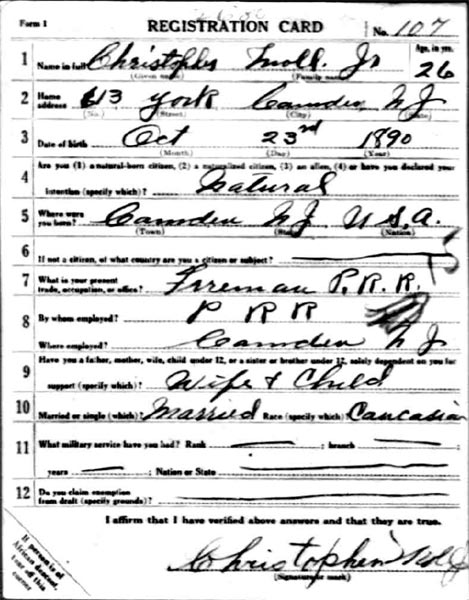 Form 1
REGISTRATION CARD
No. 107
1 Name in full Christopher Moll Jr
(Given name) (Family name)
Age, in yrs.
26
2 Home address 613 York Camden N J
(No.) (Street) (City) (State)
3 Date of birth Oct 23rd 1890
(Month) (Day) (Year)
4 Are you (1) a natural-born citizen, (2) a naturalized citizen, (3) an alien, (4) or have you declared your
intention (specify which)? Natural
5 Where were you born? Camden N J U.S.A.
(Town) (State) (Nation)
6 If not a citizen, of what country are you a citizen or subject?
7 What is your present trade, occupation, or office? Fireman P.R.R.
8 By whom employed? P R R
Where employed? Camden N J
9 Have you a father, mother, wife, child under 12, or a sister or brother under 12, solely dependent on you for
support (specify which)? Wife & Child
10 Married or single (which)? Married Race (specify which)? Caucasian
11 What military service have you had? Rank ; branch ;
years ; Nation or State
12 Do you claim exemption from draft (specify grounds)?
I affirm that I have verified above answers and that they are true.
Christopher Moll Jr
(Signature or mark)
If person is of
African descent,
tear off this
corner